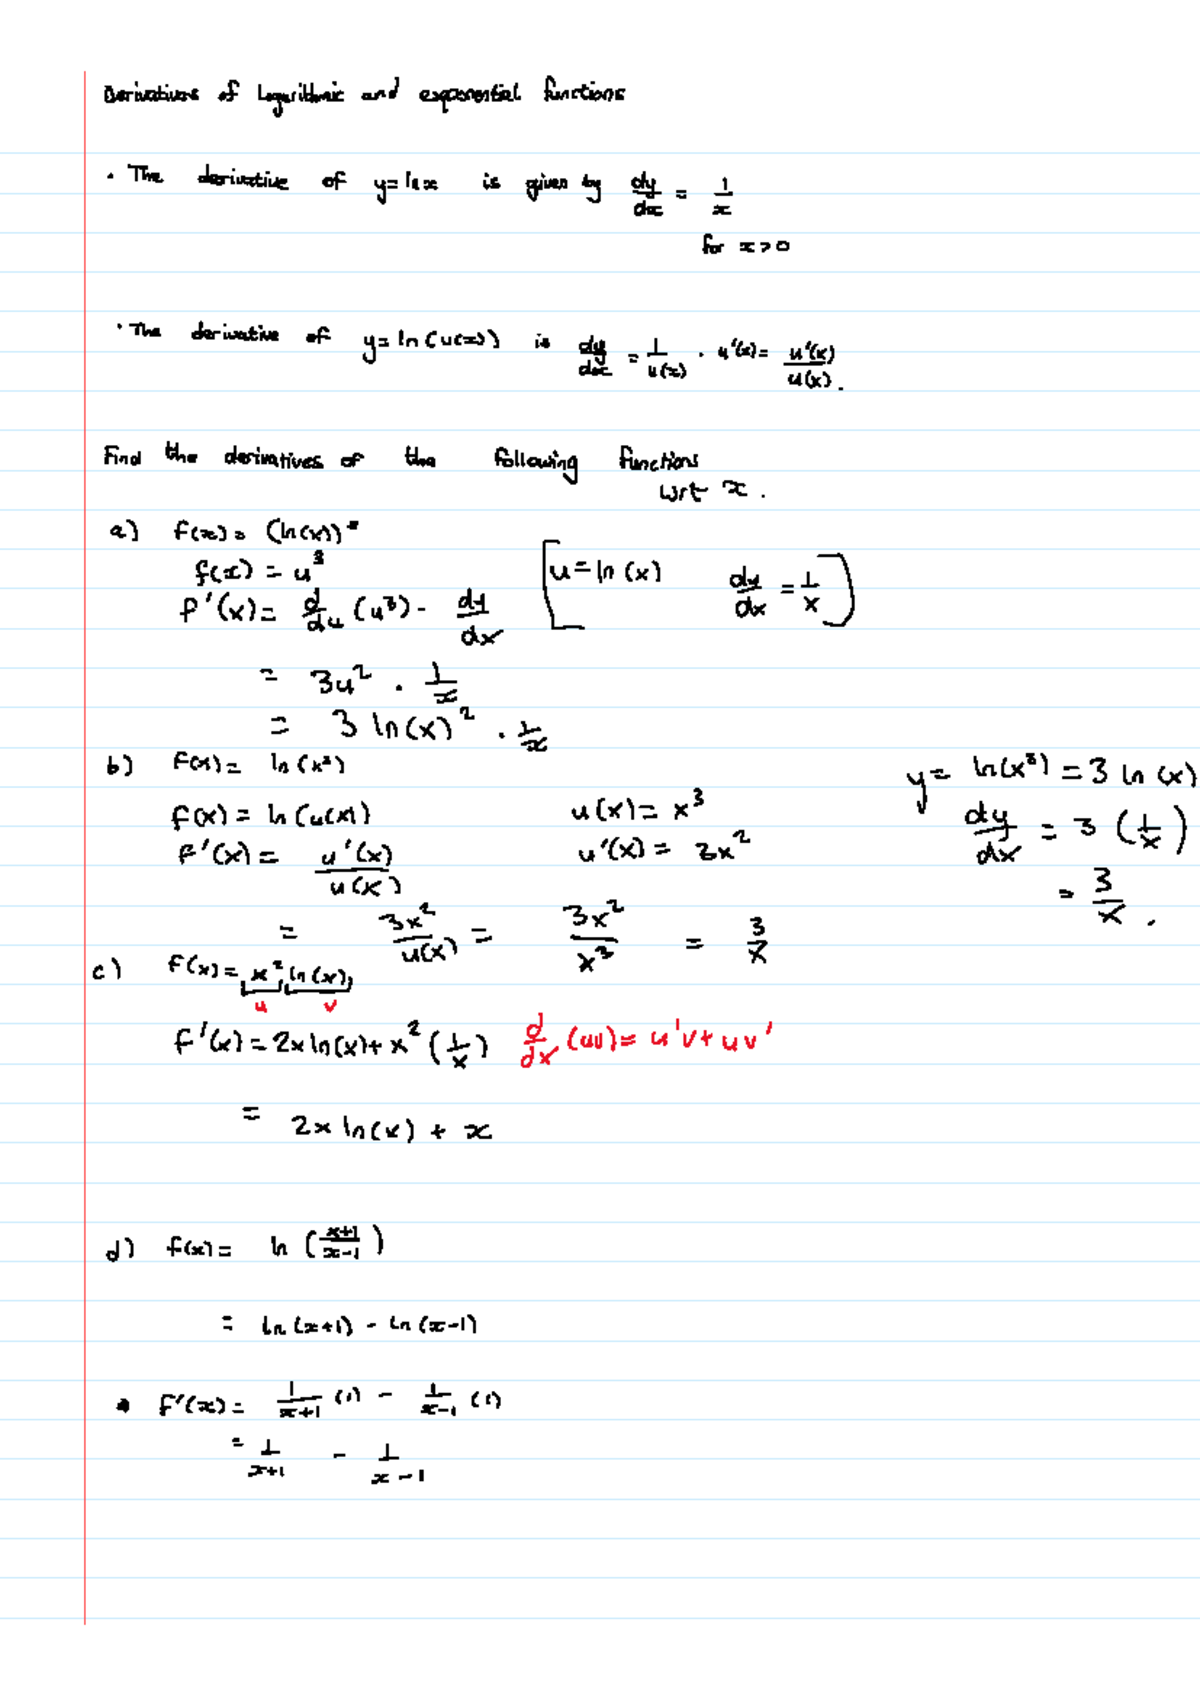 Derivatives of Logarithmic and exponential functions
· The derivative of y=ln x is given by dy/dx = 1/x
for x>0
· The derivative of y=ln(u(x)) is dy/dx = 1/u(x) · u'(x)= u'(x)/u(x).
Find the derivatives of the following functions
wrt x.
a) f(x)= (ln(x))³
f(x) = u³ [u=ln(x) dy/dx = 1/x)
f'(x)= d/du (u³) - dy/dx
= 3u² · 1/x
= 3 ln(x)² · 1/x
b) f(x)= ln(x³)
f(x) = ln(u(x)) u(x)= x³
f'(x) = u'(x)/u(x) u'(x) = 3x²
= 3x²/u(x) = 3x²/x³ = 3/x
y= ln(x³) = 3 ln(x)
dy/dx = 3 (1/x)
= 3/x.
c) f(x)= x² ln(x)
u v
f'(x) = 2x ln(x)+ x² (1/x) d/dx (uv)= u'v+ uv'
= 2x ln(x) + x
d) f(x)= ln (x+1/x-1)
= ln(x+1) - ln(x-1)
f'(x)= 1/x+1 (1) - 1/x-1 (1)
= 1/x+1 - 1/x-1